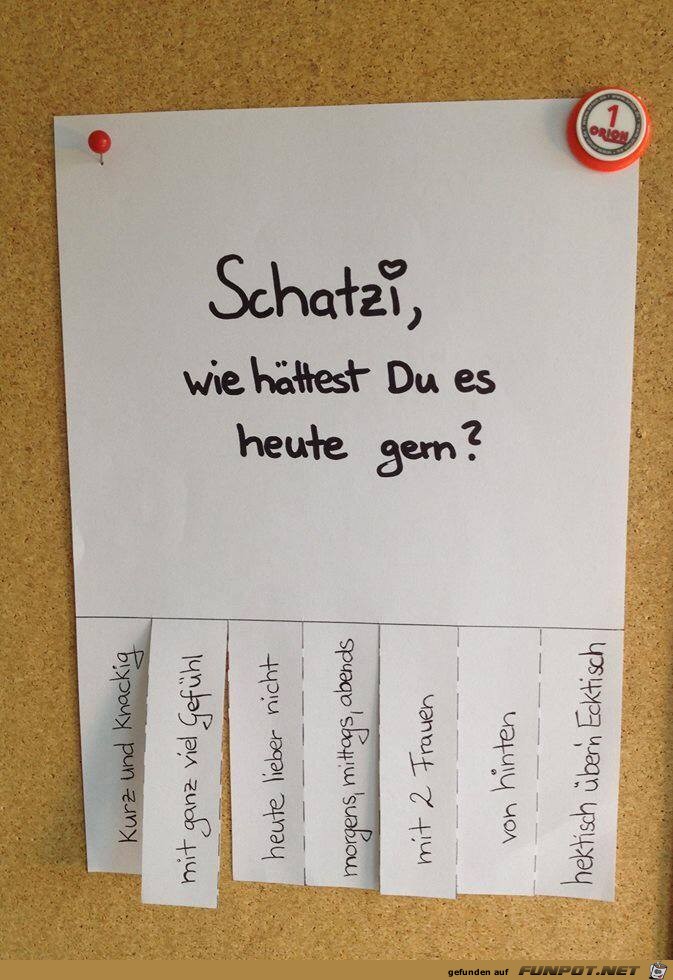 1
ORION
Schatzi,
wie hättest Du es
heute gern?
kurz und knackig
mit ganz viel Gefühl
heute lieber nicht
morgens, mittags, abends
mit 2 Frauen
von hinten
hektisch über'n Ecktisch
gefunden auf FUNPOT.NET